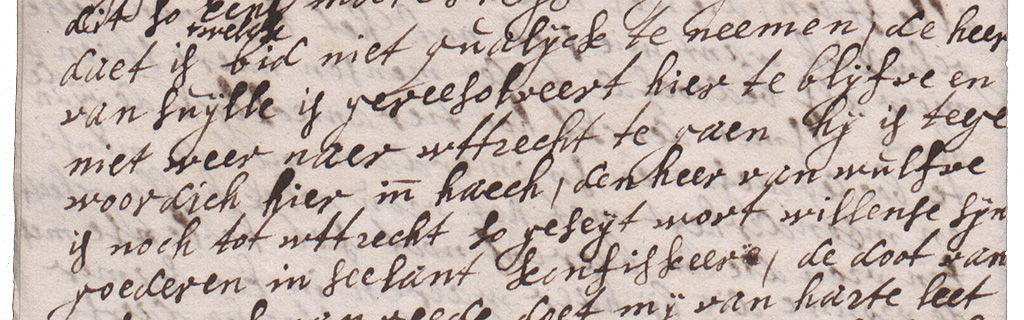 dit so eens
twelck
daet is bid niet qualijck te neemen, de heer
van suijlle is gereesolveert hier te blijfve en
niet weer naer uttrecht te gaen hij is tege
woordich hier in haech, den heer van wulfve
is noch tot uttrecht so geseijt wort willense sijn
goederen in seelant konfiskeere, de doot van
van reede doet mij van harte leet